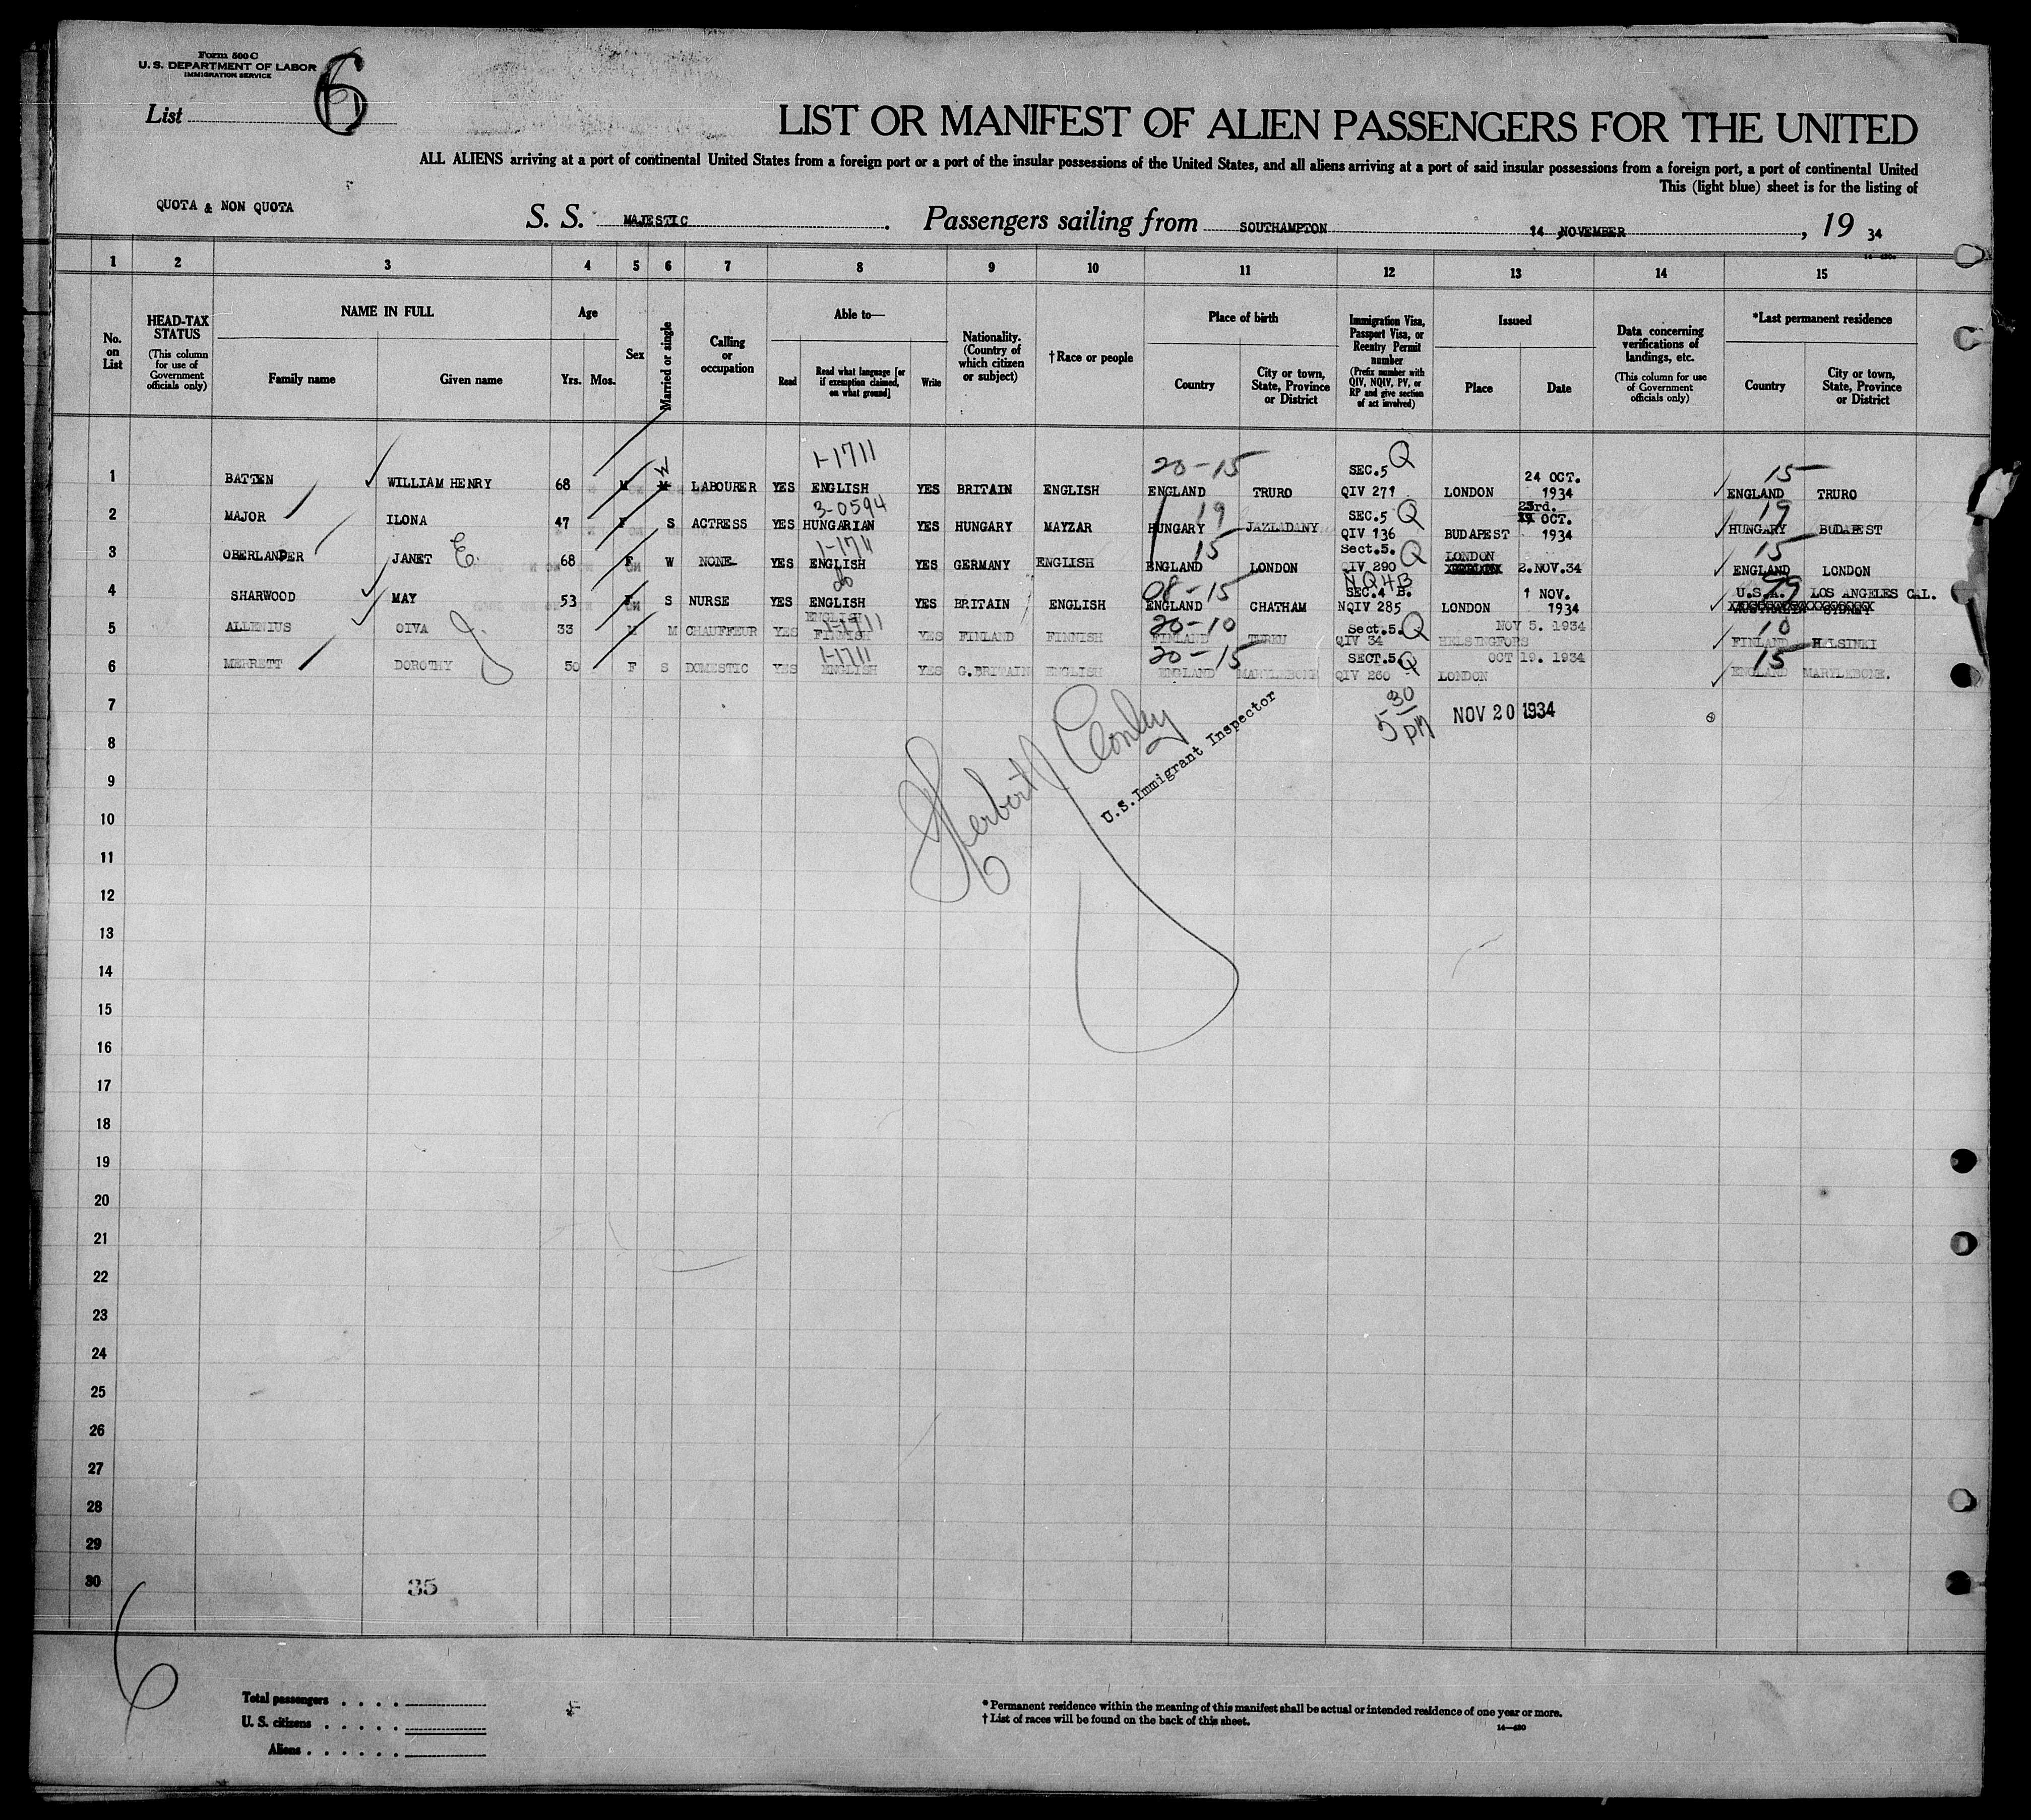 Form 500 C
U. S. DEPARTMENT OF LABOR
IMMIGRATION SERVICE
List 6
LIST OR MANIFEST OF ALIEN PASSENGERS FOR THE UNITED
ALL ALIENS arriving at a port of continental United States from a foreign port or a port of the insular possessions of the United States, and all aliens arriving at a port of said insular possessions from a foreign port, a port of continental United
This (light blue) sheet is for the listing of
QUOTA & NON QUOTA
S. S. MAJESTIC. Passengers sailing from SOUTHAMPTON 14 NOVEMBER, 19 34
1 2 3 4 5 6 7 8 9 10 11 12 13 14 15
No. on List
HEAD-TAX STATUS
(This column for use of Government officials only)
NAME IN FULL
Family name Given name
Age
Yrs. Mos.
Sex
Married or single
Calling or occupation
Able to—
Read Read what language [or if exemption claimed, on what ground] Write
Nationality. (Country of which citizen or subject)
†Race or people
Place of birth
Country City or town, State, Province or District
Immigration Visa, Passport Visa, or Reentry Permit number
(Prefix number with QIV, NQIV, PV, or RP and give section of act involved)
Issued
Place Date
Data concerning verifications of landings, etc.
(This column for use of Government officials only)
*Last permanent residence
Country City or town, State, Province or District
1-1711 20-15 SEC.5 Q 24 OCT. 15
1 BATTEN WILLIAM HENRY 68 M W LABOURER YES ENGLISH YES BRITAIN ENGLISH ENGLAND TRURO QIV 271 LONDON 1934 ENGLAND TRURO
3-0594 19 SEC.5 Q 23rd. OCT. 19
2 MAJOR ILONA 47 F S ACTRESS YES HUNGARIAN YES HUNGARY MAYZAR HUNGARY JAZLADANY QIV 136 BUDAPEST 1934 HUNGARY BUDAPEST
1-1711 15 Sect.5. Q LONDON 15
3 OBERLANDER JANET E. 68 F W NONE YES ENGLISH YES GERMANY ENGLISH ENGLAND LONDON QIV 290 2.NOV.34 ENGLAND LONDON
do 08-15 NQ4B SEC.4 B. 1 NOV. 99 U.S.A. LOS ANGELES CAL.
4 SHARWOOD MAY 53 F S NURSE YES ENGLISH YES BRITAIN ENGLISH ENGLAND CHATHAM NQIV 285 LONDON 1934 AUSTRALIA SYDNEY
ENGLISH 1-1711 20-10 Sect.5. Q NOV 5. 1934 10
5 ALLENIUS OIVA J. 33 M M CHAUFFEUR YES FINNISH YES FINLAND FINNISH FINLAND TURKU QIV 34 HELSINGFORS FINLAND HELSINKI
1-1711 20-15 SECT.5. Q OCT 19. 1934 15
6 MERRETT DOROTHY 50 F S DOMESTIC YES ENGLISH YES G.BRITAIN ENGLISH ENGLAND MARYLEBONE QIV 260 LONDON ENGLAND MARYLEBONE.
7 5 30 PM NOV 20 1934
Herbert J Conley
U.S. Immigrant Inspector
8
9
10
11
12
13
14
15
16
17
18
19
20
21
22
23
24
25
26
27
28
29
30
35
6
Total passengers . . . .
U. S. citizens . . . . .
Aliens . . . . . .
* Permanent residence within the meaning of this manifest shall be actual or intended residence of one year or more.
† List of races will be found on the back of this sheet.
14—430